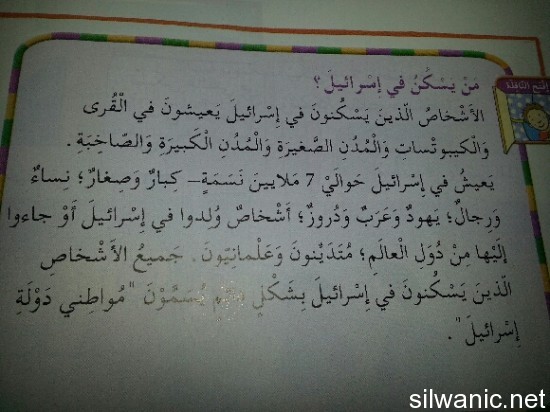 مَنْ يَسْكُنُ في إسْرائيلَ؟
اِفْتَحِ النّافِذَةَ
الأَشْخاصُ الّذينَ يَسْكُنونَ في إسْرائيلَ يَعيشونَ في الْقُرى
وَالْكيبوتْساتِ وَالْمُدُنِ الصَّغيرَةِ وَالْمُدُنِ الْكَبيرَةِ وَالصّاخِبَةِ.
يَعيشُ في إسْرائيلَ حَوالَيْ 7 مَلايينَ نَسَمَةٍ – كِبارٌ وَصِغارٌ؛ نِساءٌ
وَرِجالٌ؛ يَهودٌ وَعَرَبٌ وَدُروزٌ؛ أَشْخاصٌ وُلِدوا في إسْرائيلَ أَوْ جاءوا
إلَيْها مِنْ دُوَلِ الْعالَمِ؛ مُتَدَيِّنونَ وَعَلْمانِيّونَ. جَميعُ الأَشْخاصِ
الّذينَ يَسْكُنونَ في إسْرائيلَ بِشَكْلٍ يُسَمَّوْنَ "مُواطِني دَوْلَةِ
إسْرائيلَ".
silwanic.net